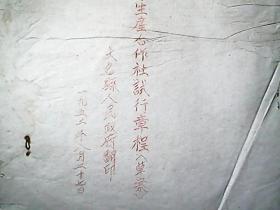 生產合作社試行章程（草案）
大邑縣人民政府翻印
一九五三年八月二十七日